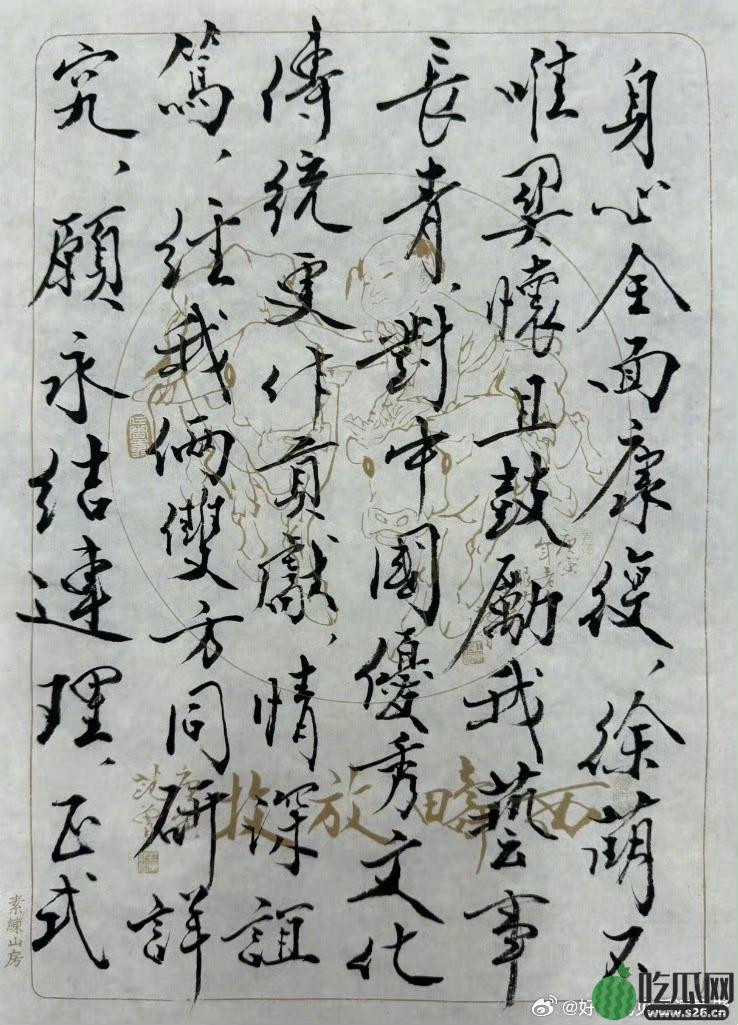 身心全面康復、徐萌不
唯契懷且鼓勵我藝事
長青、對中國優秀文化
傳統更作貢獻、情深誼
篤、經我倆雙方同研詳
究、願永結連理、正式
西疇放牧
素練山房
吃瓜网
www.s26.cn